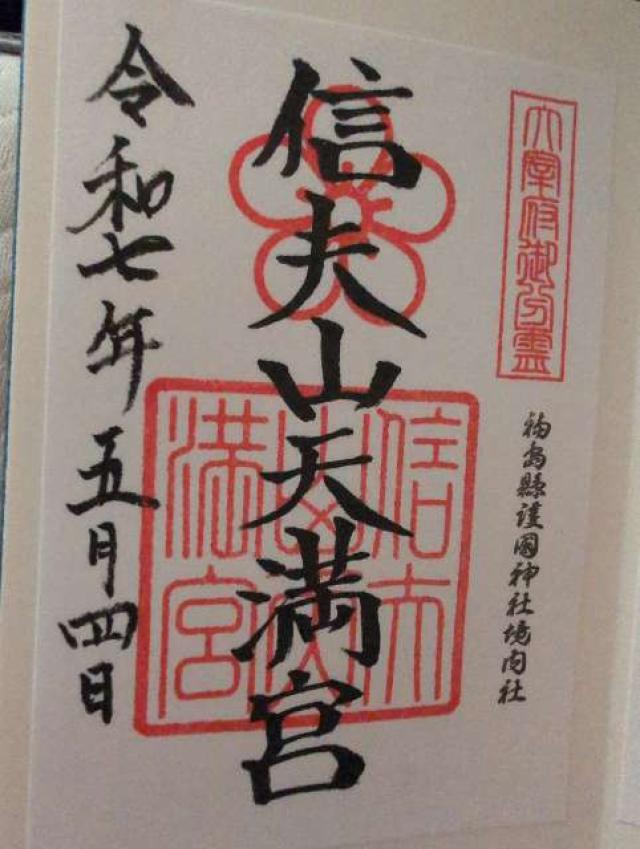 太宰府御分霊
福島縣護國神社境内社
信夫山天満宮
信夫山天満宮
令和七年五月四日